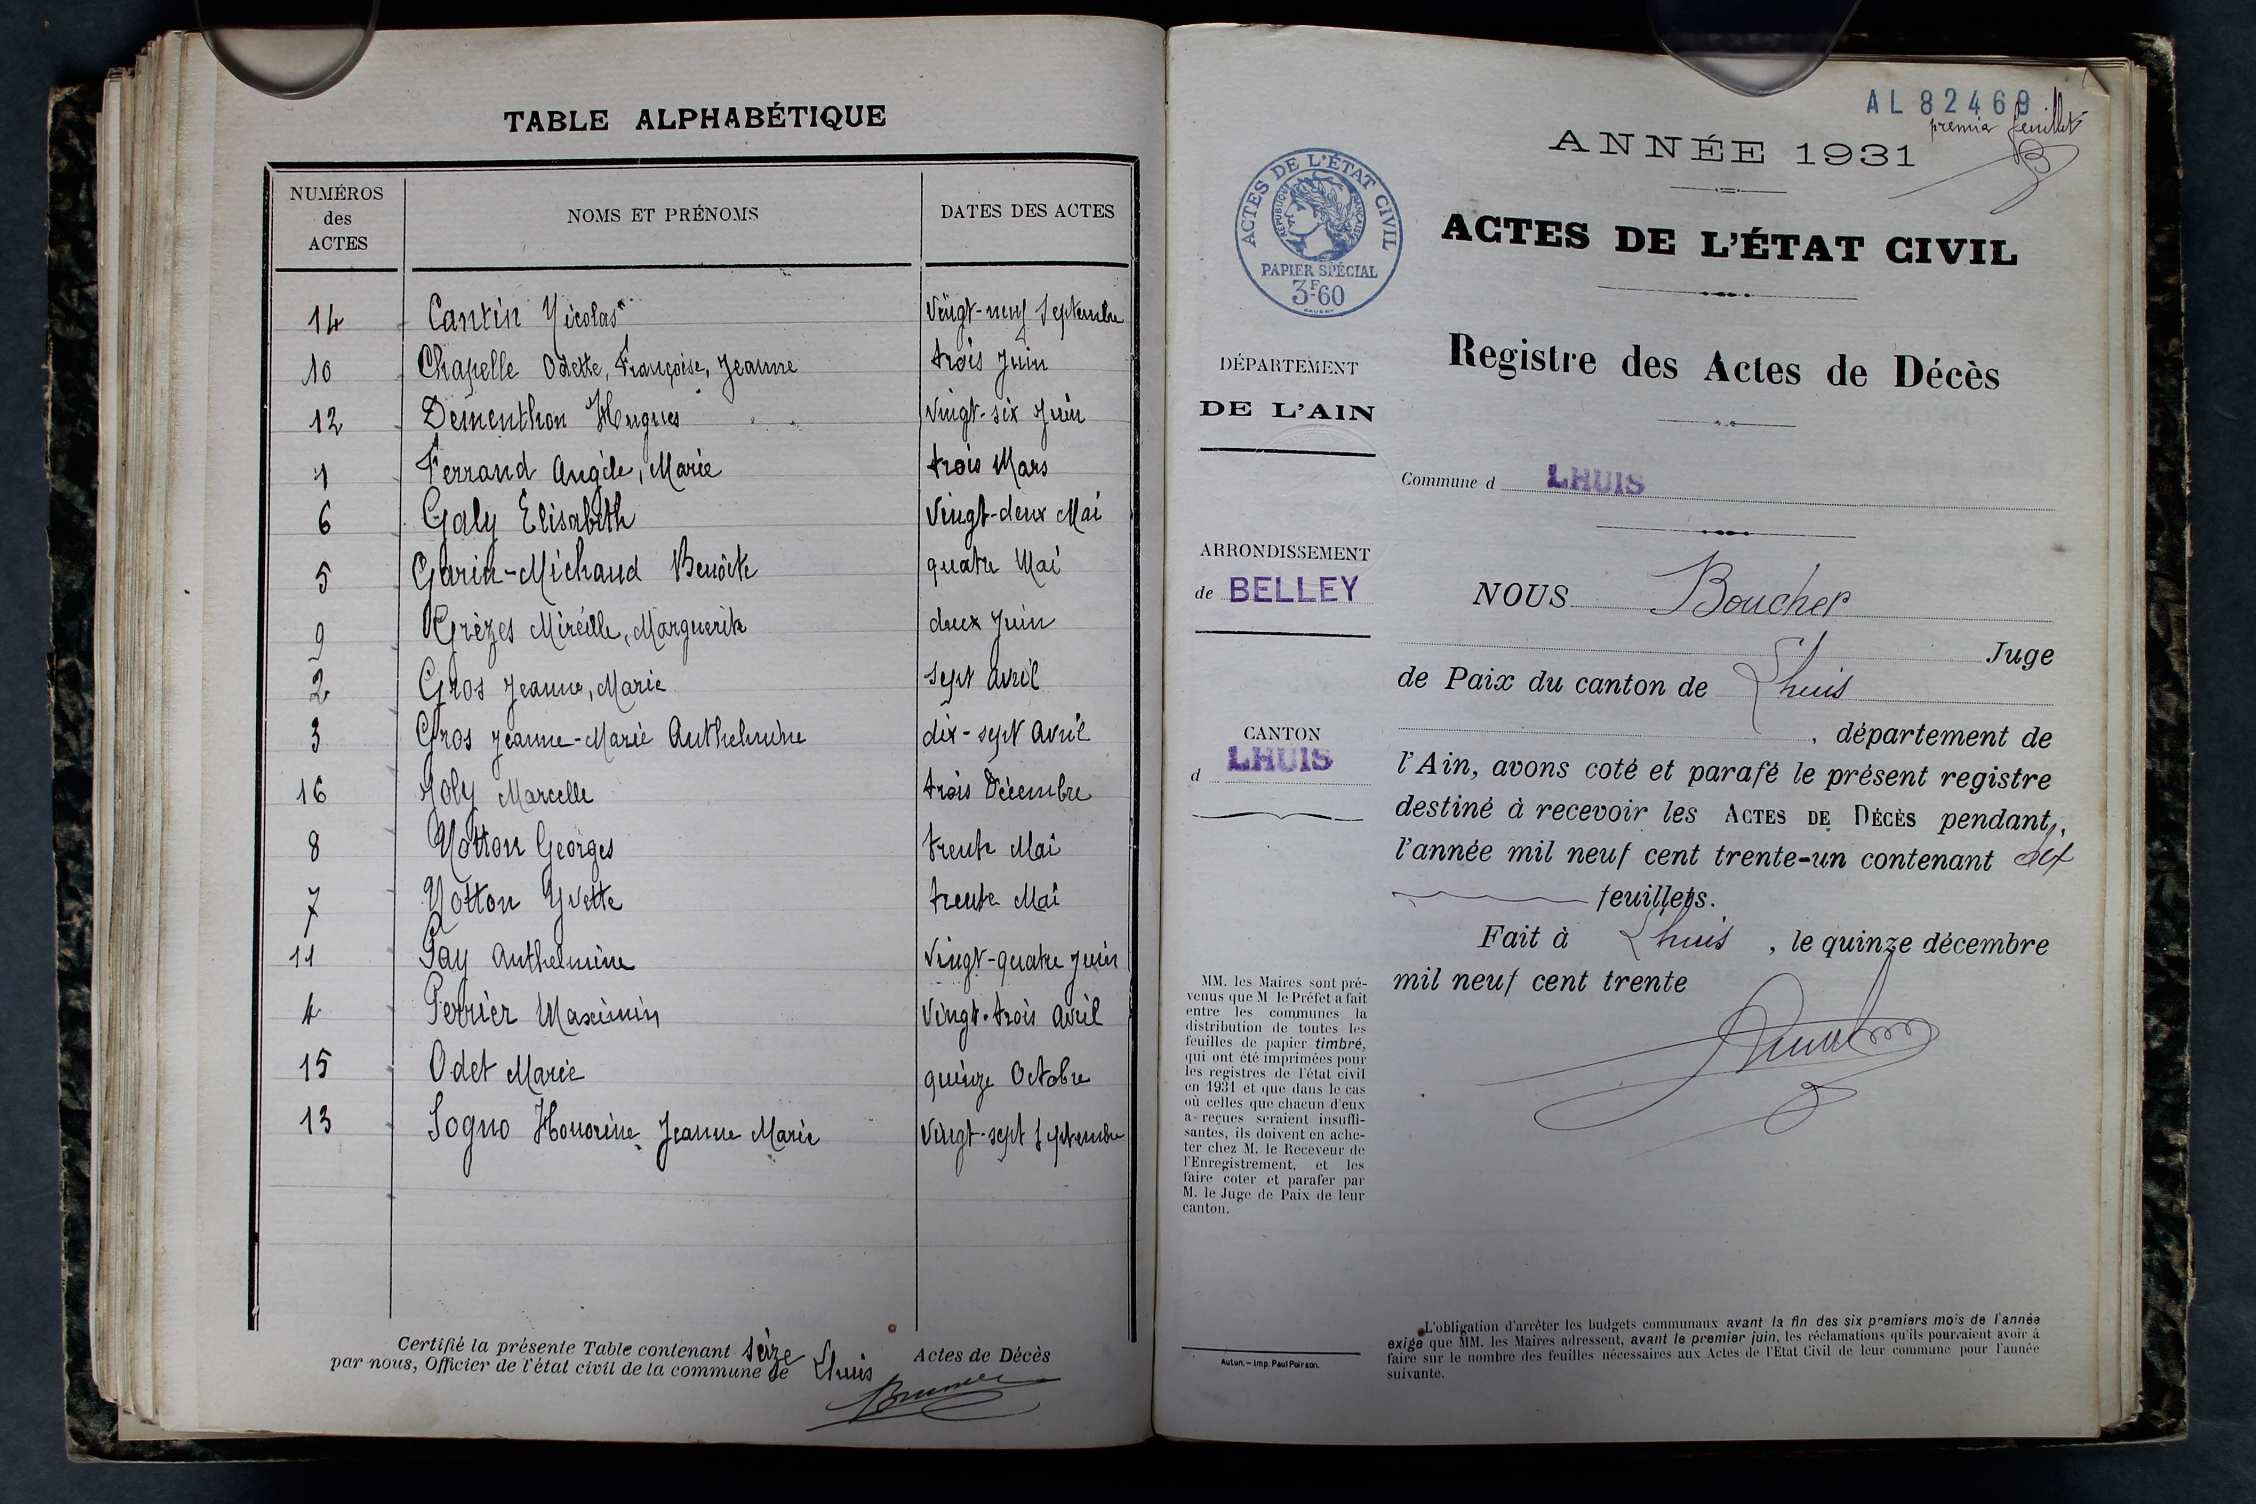 TABLE ALPHABÉTIQUE
NUMÉROS des ACTES NOMS ET PRÉNOMS DATES DES ACTES
14 Cantin Nicolas Vingt-neuf Septembre
10 Chapelle Odette, Françoise, Jeanne trois Juin
12 Dementhon Hugues Vingt-six Juin
1 Ferrand Angèle, Marie trois Mars
6 Galy Elisabeth Vingt-deux Mai
5 Garin-Michaud Benoîte quatre Mai
9 Grèzes Mireille, Marguerite deux Juin
2 Gros Jeanne, Marie sept avril
3 Gros Jeanne-Marie Anthelmine dix-sept avril
16 Joly Marcelle trois Décembre
8 Notton Georges trente Mai
7 Notton Yvette trente Mai
11 Pay Anthelmine Vingt-quatre Juin
4 Perrier Maximin Vingt-trois avril
15 Odet Marie quinze Octobre
13 Sogno Honorine Jeanne Marie Vingt-sept Septembre
Certifié la présente Table contenant seize Actes de Décès
par nous, Officier de l'état civil de la commune de Lhuis
AL 82469
premier feuillet
ANNÉE 1931
ACTES DE L'ÉTAT CIVIL
RÉPUBLIQUE FRANÇAISE
PAPIER SPÉCIAL
3F60
ACTES DE L'ÉTAT CIVIL
Registre des Actes de Décès
DÉPARTEMENT
DE L'AIN
Commune d LHUIS
ARRONDISSEMENT
de BELLEY
CANTON
d LHUIS
NOUS Boucher
Juge
de Paix du canton de Lhuis
, département de
l'Ain, avons coté et parafé le présent registre
destiné à recevoir les ACTES DE DÉCÈS pendant
l'année mil neuf cent trente-un contenant dix
feuillets.
Fait à Lhuis, le quinze décembre
mil neuf cent trente
MM. les Maires sont pré-
venus que M le Préfet a fait
entre les communes la
distribution de toutes les
feuilles de papier timbré,
qui ont été imprimées pour
les registres de l'état civil
en 1931 et que dans le cas
où celles que chacun d'eux
a reçues seraient insuffi-
santes, ils doivent en ache-
ter chez M. le Receveur de
l'Enregistrement, et les
faire coter et parafer par
M. le Juge de Paix de leur
canton.
Autun. - Imp. Paul Poirson.
L'obligation d'arrêter les budgets communaux avant la fin des six premiers mois de l'année
exige que MM. les Maires adressent, avant le premier juin, les réclamations qu'ils pourraient avoir à
faire sur le nombre des feuilles nécessaires aux Actes de l'Etat Civil de leur commune pour l'année
suivante.